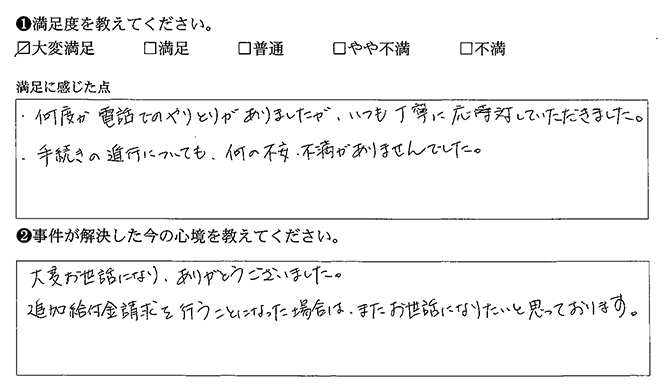 ❶満足度を教えてください。
☑大変満足 □満足 □普通 □やや不満 □不満
満足に感じた点
・何度か電話でのやりとりがありましたが、いつも丁寧に応対していただきました。
・手続きの進行についても、何の不安・不満がありませんでした。
❷事件が解決した今の心境を教えてください。
大変お世話になり、ありがとうございました。
追加給付金請求を行うことになった場合は、またお世話になりたいと思っております。